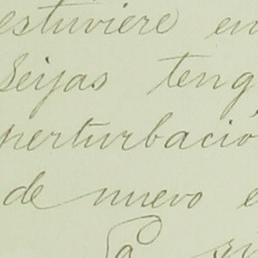 estuviere en
Seijas teng
perturbació
de nuevo e
La si